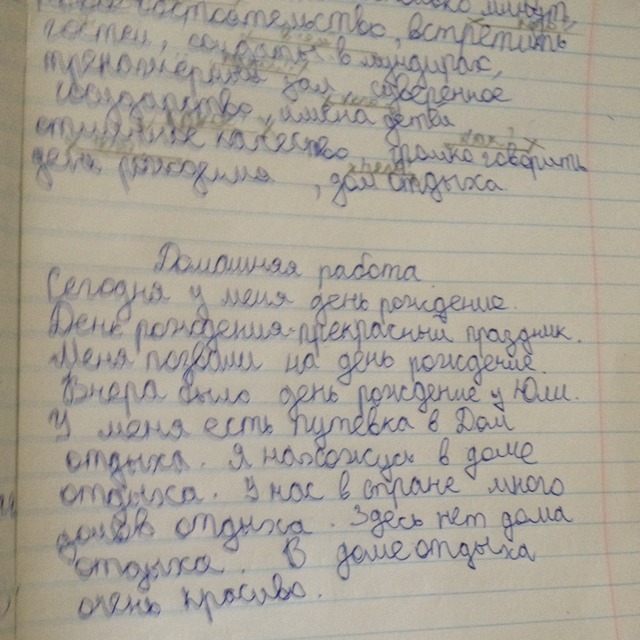 встретить
гостей, солдаты в мундирах,
тренажерный зал, суверенное
государство, имена детва
отличное качество, громко говорить
день рождения, дом отдыха
Домашняя работа
Сегодня у меня день рождение.
День рождения-прекрасный праздник.
Меня позвали на день рождение.
Вчера было день рождение у Юли.
У меня есть путевка в Дом
отдыха. Я нахожусь в доме
отдыха. У нас в стране много
домов отдыха. Здесь нет дома
отдыха. В доме отдыха
очень красиво.